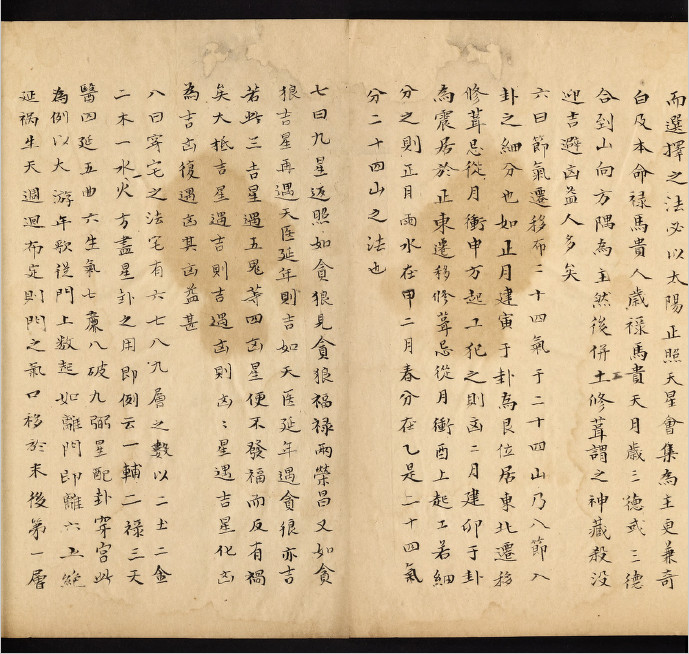 而選擇之法必以太陽正照天星會集為主更兼奇
白及本命禄馬貴人歲禄馬貴天月歲三德或三德
合到山向方隅為主然後併土修葺謂之神藏殺没
迎吉避凶益人多矣
六曰節氣遷移布二十四氣于二十四山乃八節入
卦之細分也如正月建寅于卦為艮位居東北遷移
修葺忌從月衝申方起工犯之則凶二月建卯于卦
為震居於正東遷移修葺忌從月衝酉上起工若細
分之則正月雨水在甲二月春分在乙是二十四氣
分二十四山之法也
七曰九星返照如貪狼見貪狼福禄兩榮昌又如貪
狼吉星再遇天医延年則吉如天医延年遇貪狼亦吉
若此三吉星遇五鬼等四凶星便不發福而反有禍
矣大抵吉星遇吉則吉遇凶則凶〻星遇吉星化凶
為吉凶復遇凶其凶益甚
八曰穿宅之法宅有六七八九層之數以二土二金
二木一水一火方盡星卦之用即例云一輔二禄三天
醫四延五曲六生氣七廉八破九弼星配卦穿宫此
為例以大游年歌從門上数起如離門即離六五絶
延禍生天週迴布定則門之氣口移於末後第一層